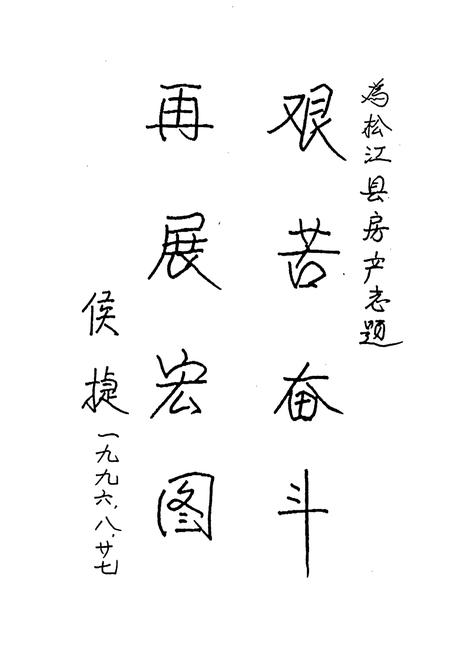 為松江县房产志题
艰苦奋斗
再展宏图
侯捷
一九九六.八.廿七